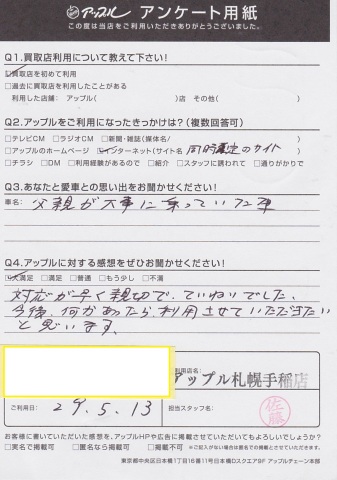 アップル アンケート用紙
この度は当店をご利用いただきありがとうございました。
Q1.買取店利用について教えて下さい!
□買取店を初めて利用
□過去に買取店を利用したことがある
利用した店舗: アップル( )店 その他( )
Q2.アップルをご利用になったきっかけは?(複数回答可)
□テレビCM □ラジオCM □新聞・雑誌(媒体名/ )
□アップルのホームページ □インターネット(サイト名 同時査定のサイト )
□チラシ □DM □利用経験があるので □紹介 □スタッフに誘われて □通りがかりで
Q3.あなたと愛車との思い出をお聞かせください!
車名:
父親が大事に乗っていた車
Q4.アップルに対する感想をぜひお聞かせください!
□大満足 □満足 □普通 □もう少し □不満
対応が早く親切で、ていねいでした、
今後、何かあったら、利用させていただきたい
と思います。
ご利用店名:
アップル札幌手稲店
ご利用日: 29.5.13
担当スタッフ名:
佐藤
お客様に書いていただいた感想を、アップルHPや広告に掲載させていただいてもよろしいでしょうか?
□実名で掲載可 □匿名なら掲載可 □掲載不可 ※ご記入がない場合は匿名での掲載とさせていただきます。
東京都中央区日本橋1丁目16番11号日本橋Dスクエア5F アップルチェーン本部